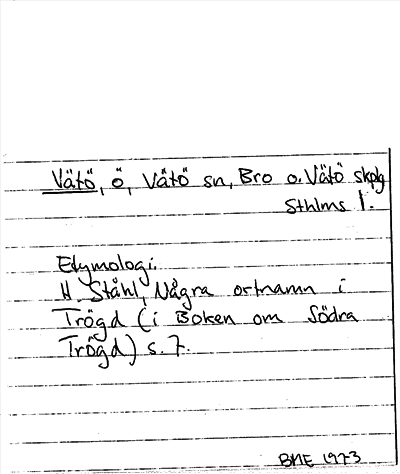 Vätö, ö, Vätö sn, Bro o. Vätö skplg
Sthlms l.
Etymologi.
H Ståhl, Några ortnamn i
Trögd (i Boken om Södra
Trögd) s. 7.
BME 1973